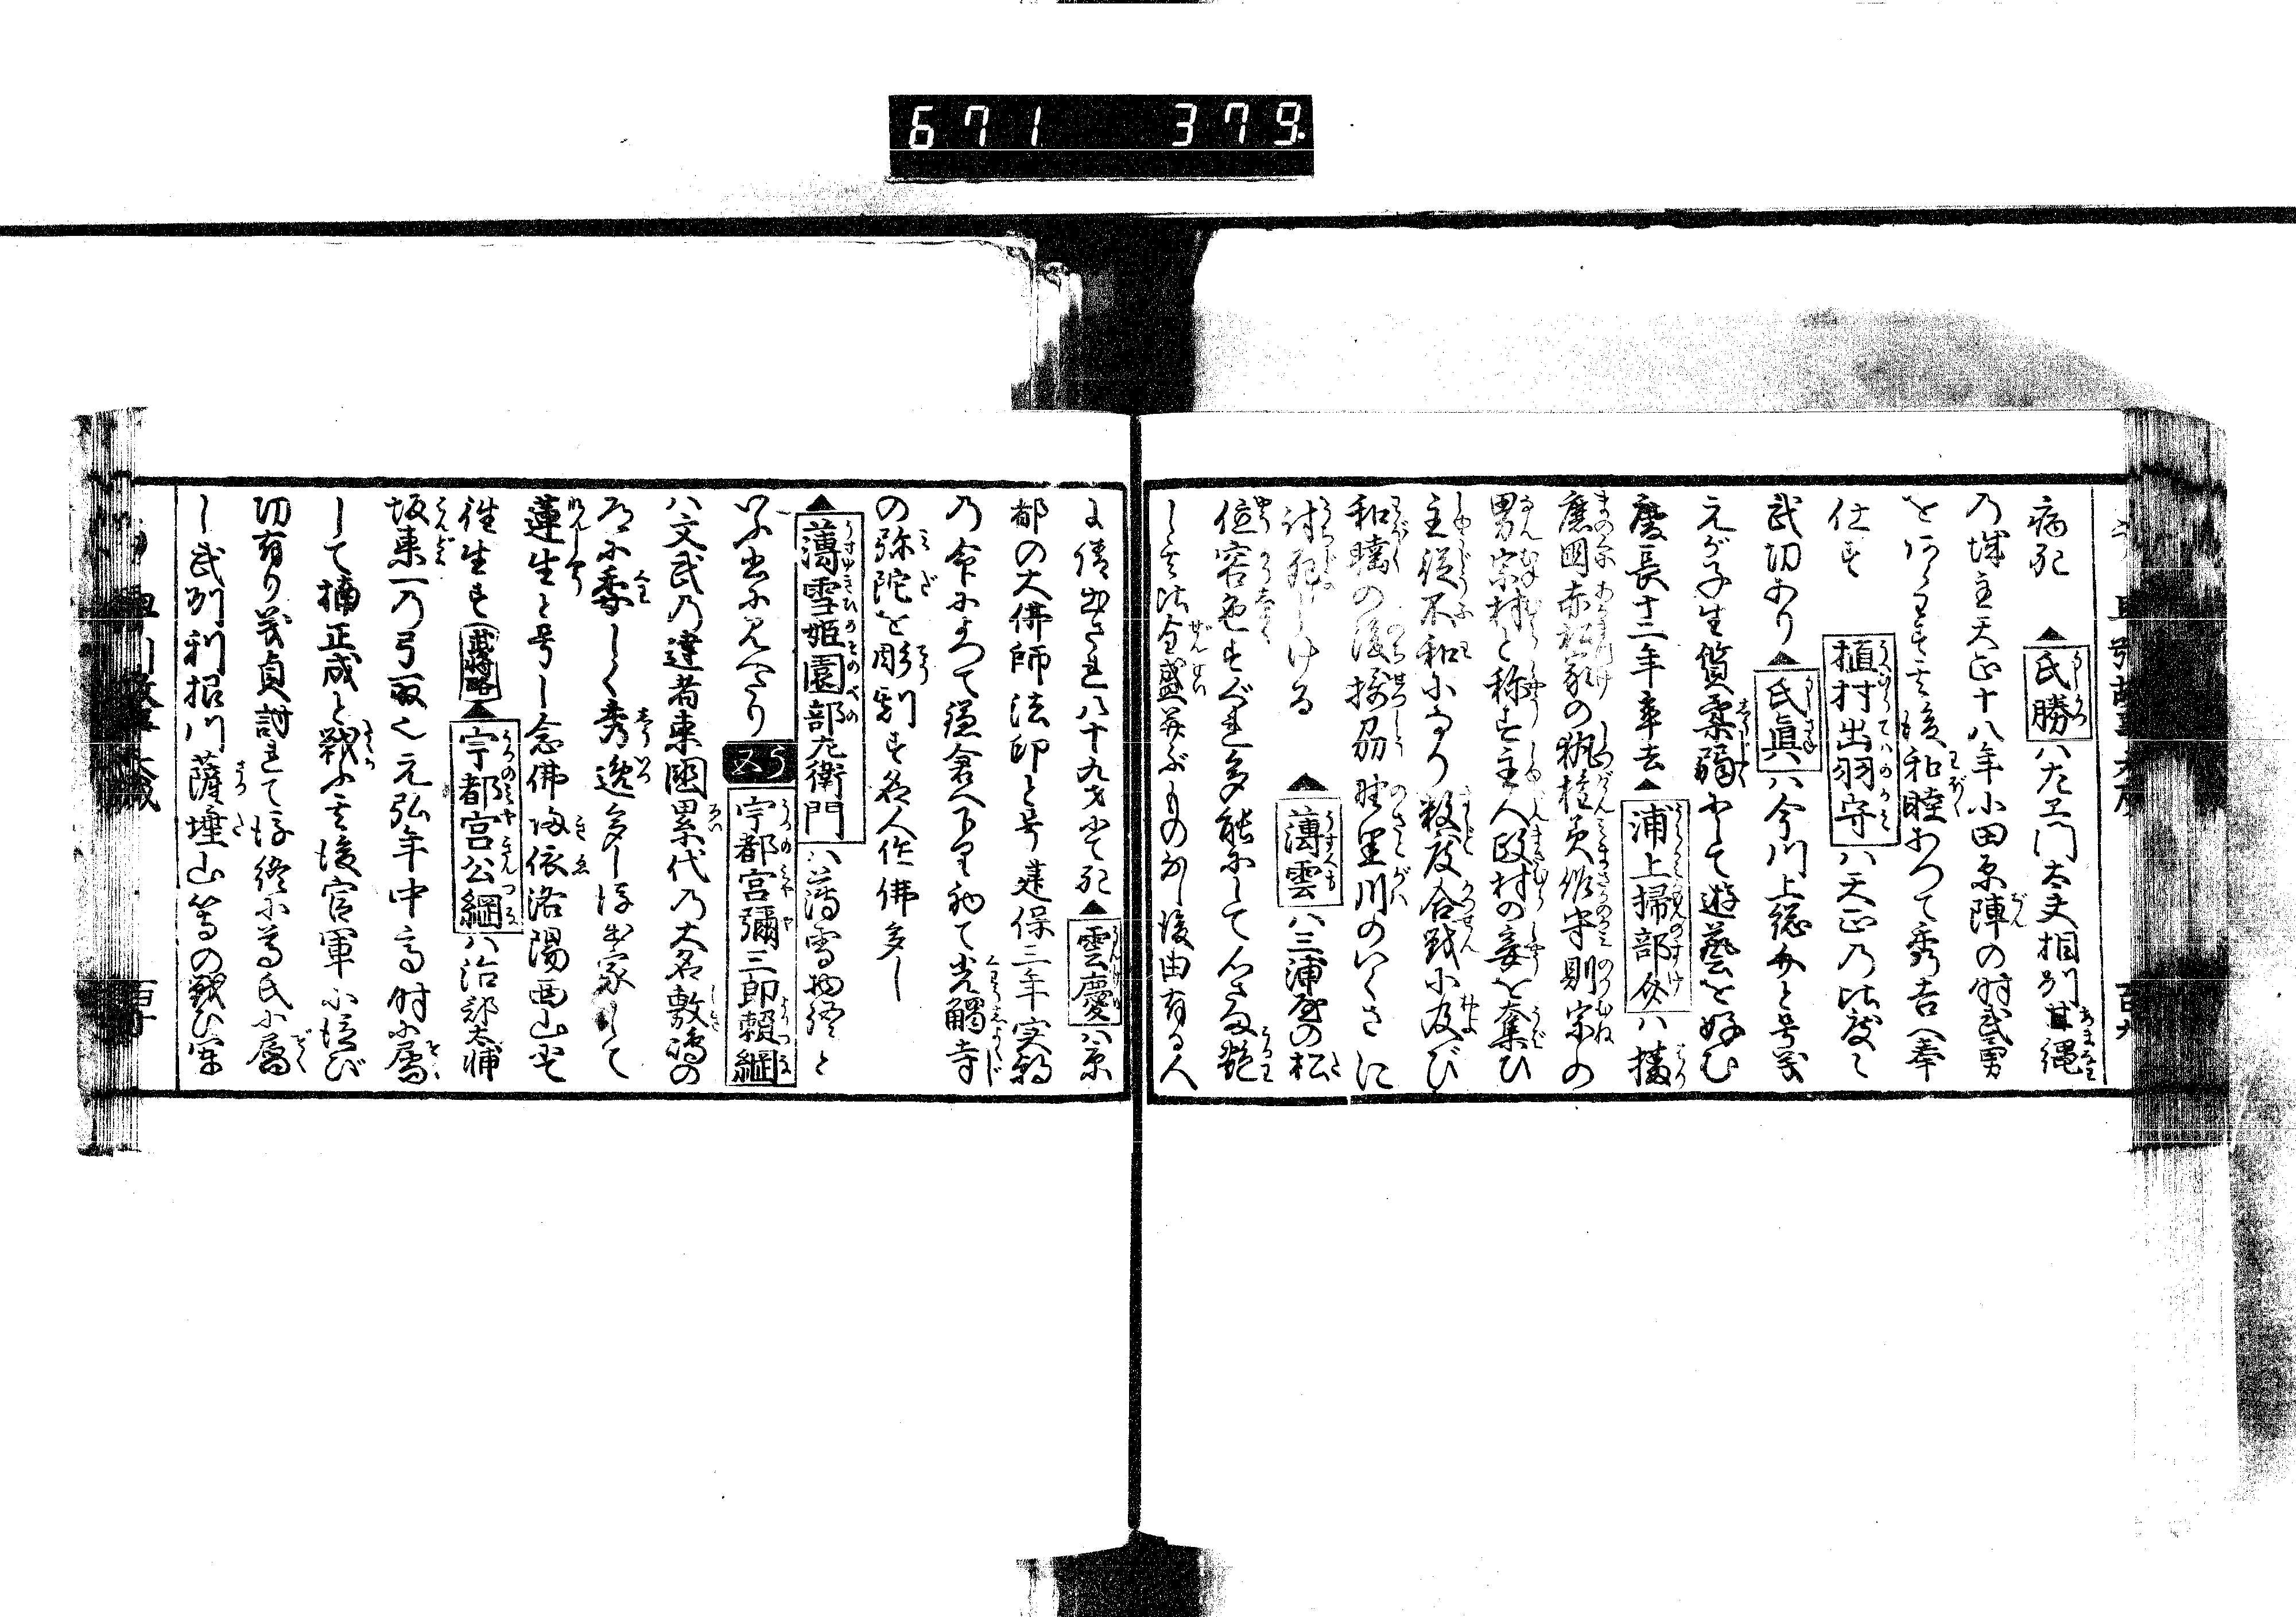 671 379
病死 ▲氏勝ハ左エ門太夫相州甘縄
の城主天正十八年小田原陣の時武勇
をあらはす其後和睦あつて秀吉へ奉
仕す 植村出羽守ハ天正の比度々
武功あり▲氏眞ハ今川上総介と号義
元が子生質柔弱にして遊藝を好む
慶長十二年卒去▲浦上掃部介ハ播
磨国赤松家の執権美作守則宗の
男宗村と称す主人政村の妾を奪ひ
主従不和になり数度合戦に及び
和睦の後摂刕野里川のいくさに
討死しける ▲薄雲ハ三浦屋の松
位容色すぐれ多能にして心さま艶
し其比全盛並ぶものなし後由有る人
に請出され八十九才にて死▲雲慶ハ京
都の大佛師法印と号建保三年実朝
の命によつて鎌倉へ下り初て光觸寺
の弥陀を彫刻す名人作佛多し
▲薄雪姫園部左衛門ハ薄雪物語と
いふ書に見へたり 又う 宇都宮彌三郎頼綱
ハ文武の達者東國累代の大名敷嶋の
道に委しく秀逸多し後出家して
蓮生と号し念佛帰依洛陽西山にて
往生す 武将略 ▲宇都宮公綱ハ治部太輔
坂東一の弓取也元弘年中高時に属
して楠正成と戦ふ其後官軍に候び
功有り義貞討れて後終に尊氏に属
し武州利招川薩埵山等の戦ひ軍